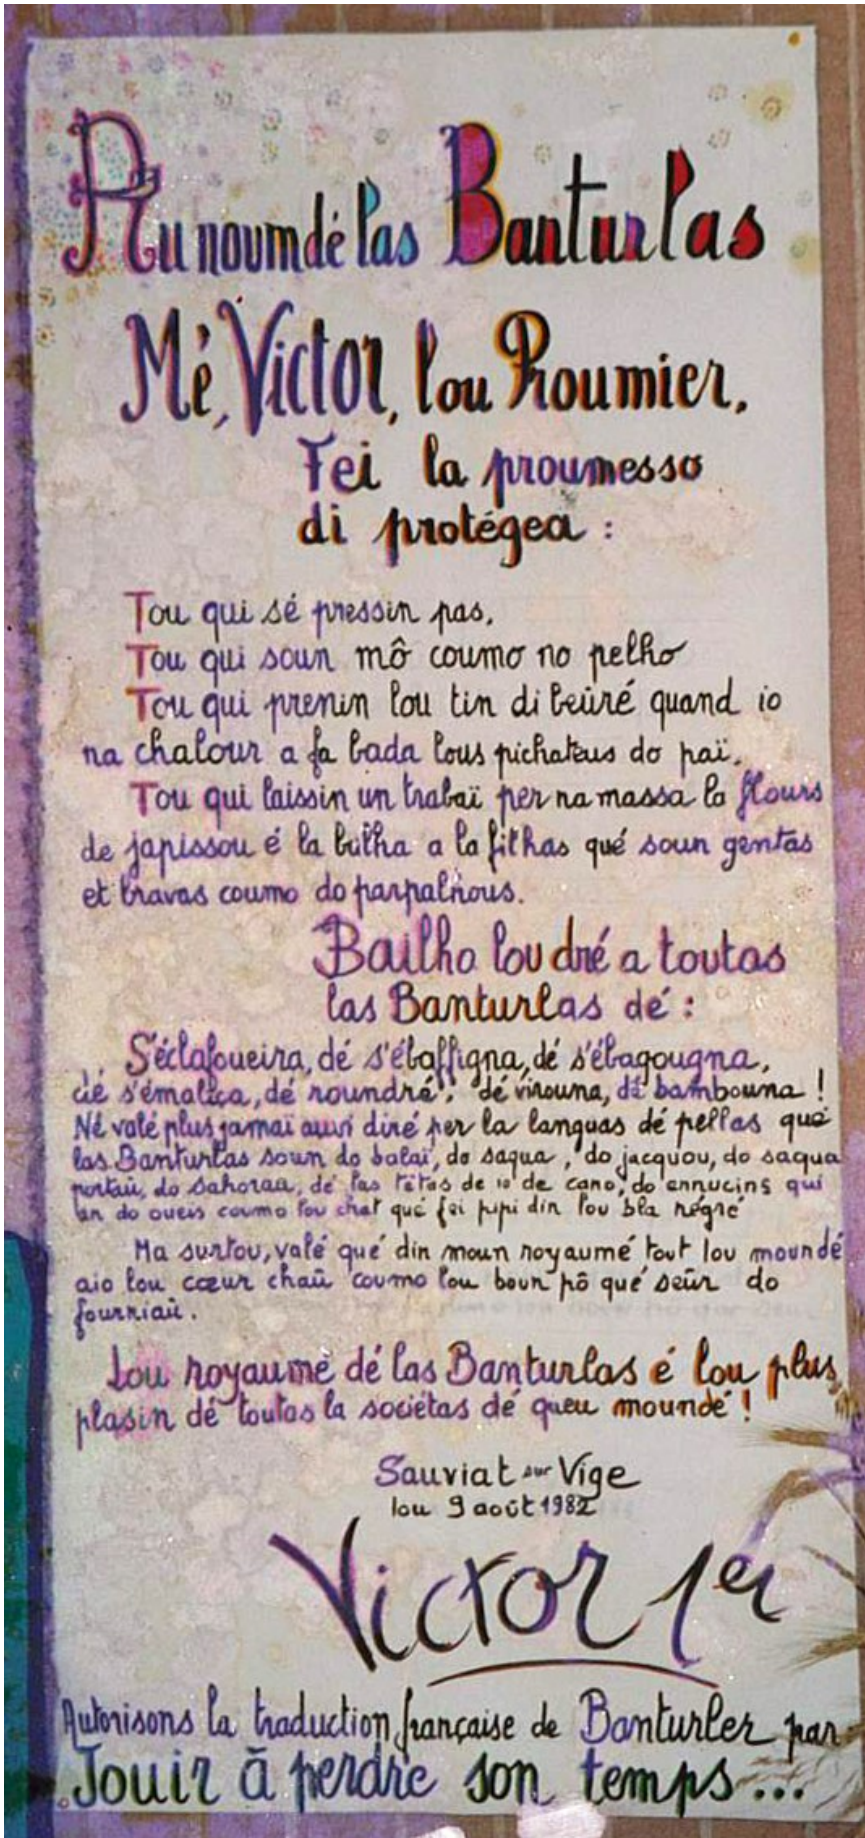 Au noum dé las Banturlas
Mé, Victor, lou Proumier,
Fei la proumesso
di protégea :
Tou qui sé pressin pas,
Tou qui soun mô coumo no pelho
Tou qui prenin lou tin di beüré quand io
na chalour a fa bada lous pichateus do païs.
Tou qui laissin un trabaï per na massa la flours
de japissou é la builha a la filhas qué soun gentas
et bravas coumo do parpalhous.
Bailho lou dré a toutas
las Banturlas dé :
S'éclafoueira, dé s'ébaffigna, dé s'ébagougna,
dé s'émaliça, dé roundré, dé virouna, dé bambouna !
Né valé plus jamaï auvi diré per la languas dé pellas qué
las Banturlas soun do balaï, do saqua, do jacquou, do saqua
portaü, do sahoraa, dé las têtas de de cano, do ennucins qui
an do oueis coumo lou chat qué fei pipi din lou bla négré
Ma surtou, valé qué din moun royaumé tout lou moundé
aio lou cœur chaü coumo lou boun pô qué seür do
fourniaü.
Lou royaumé dé las Banturlas é lou plus
plasin dé toutas la sociétas dé queu moundé !
Sauviat sur Vige
lou 9 août 1982
Victor 1er
Autorisons la traduction française de Banturler par
Jouir à perdre son temps...